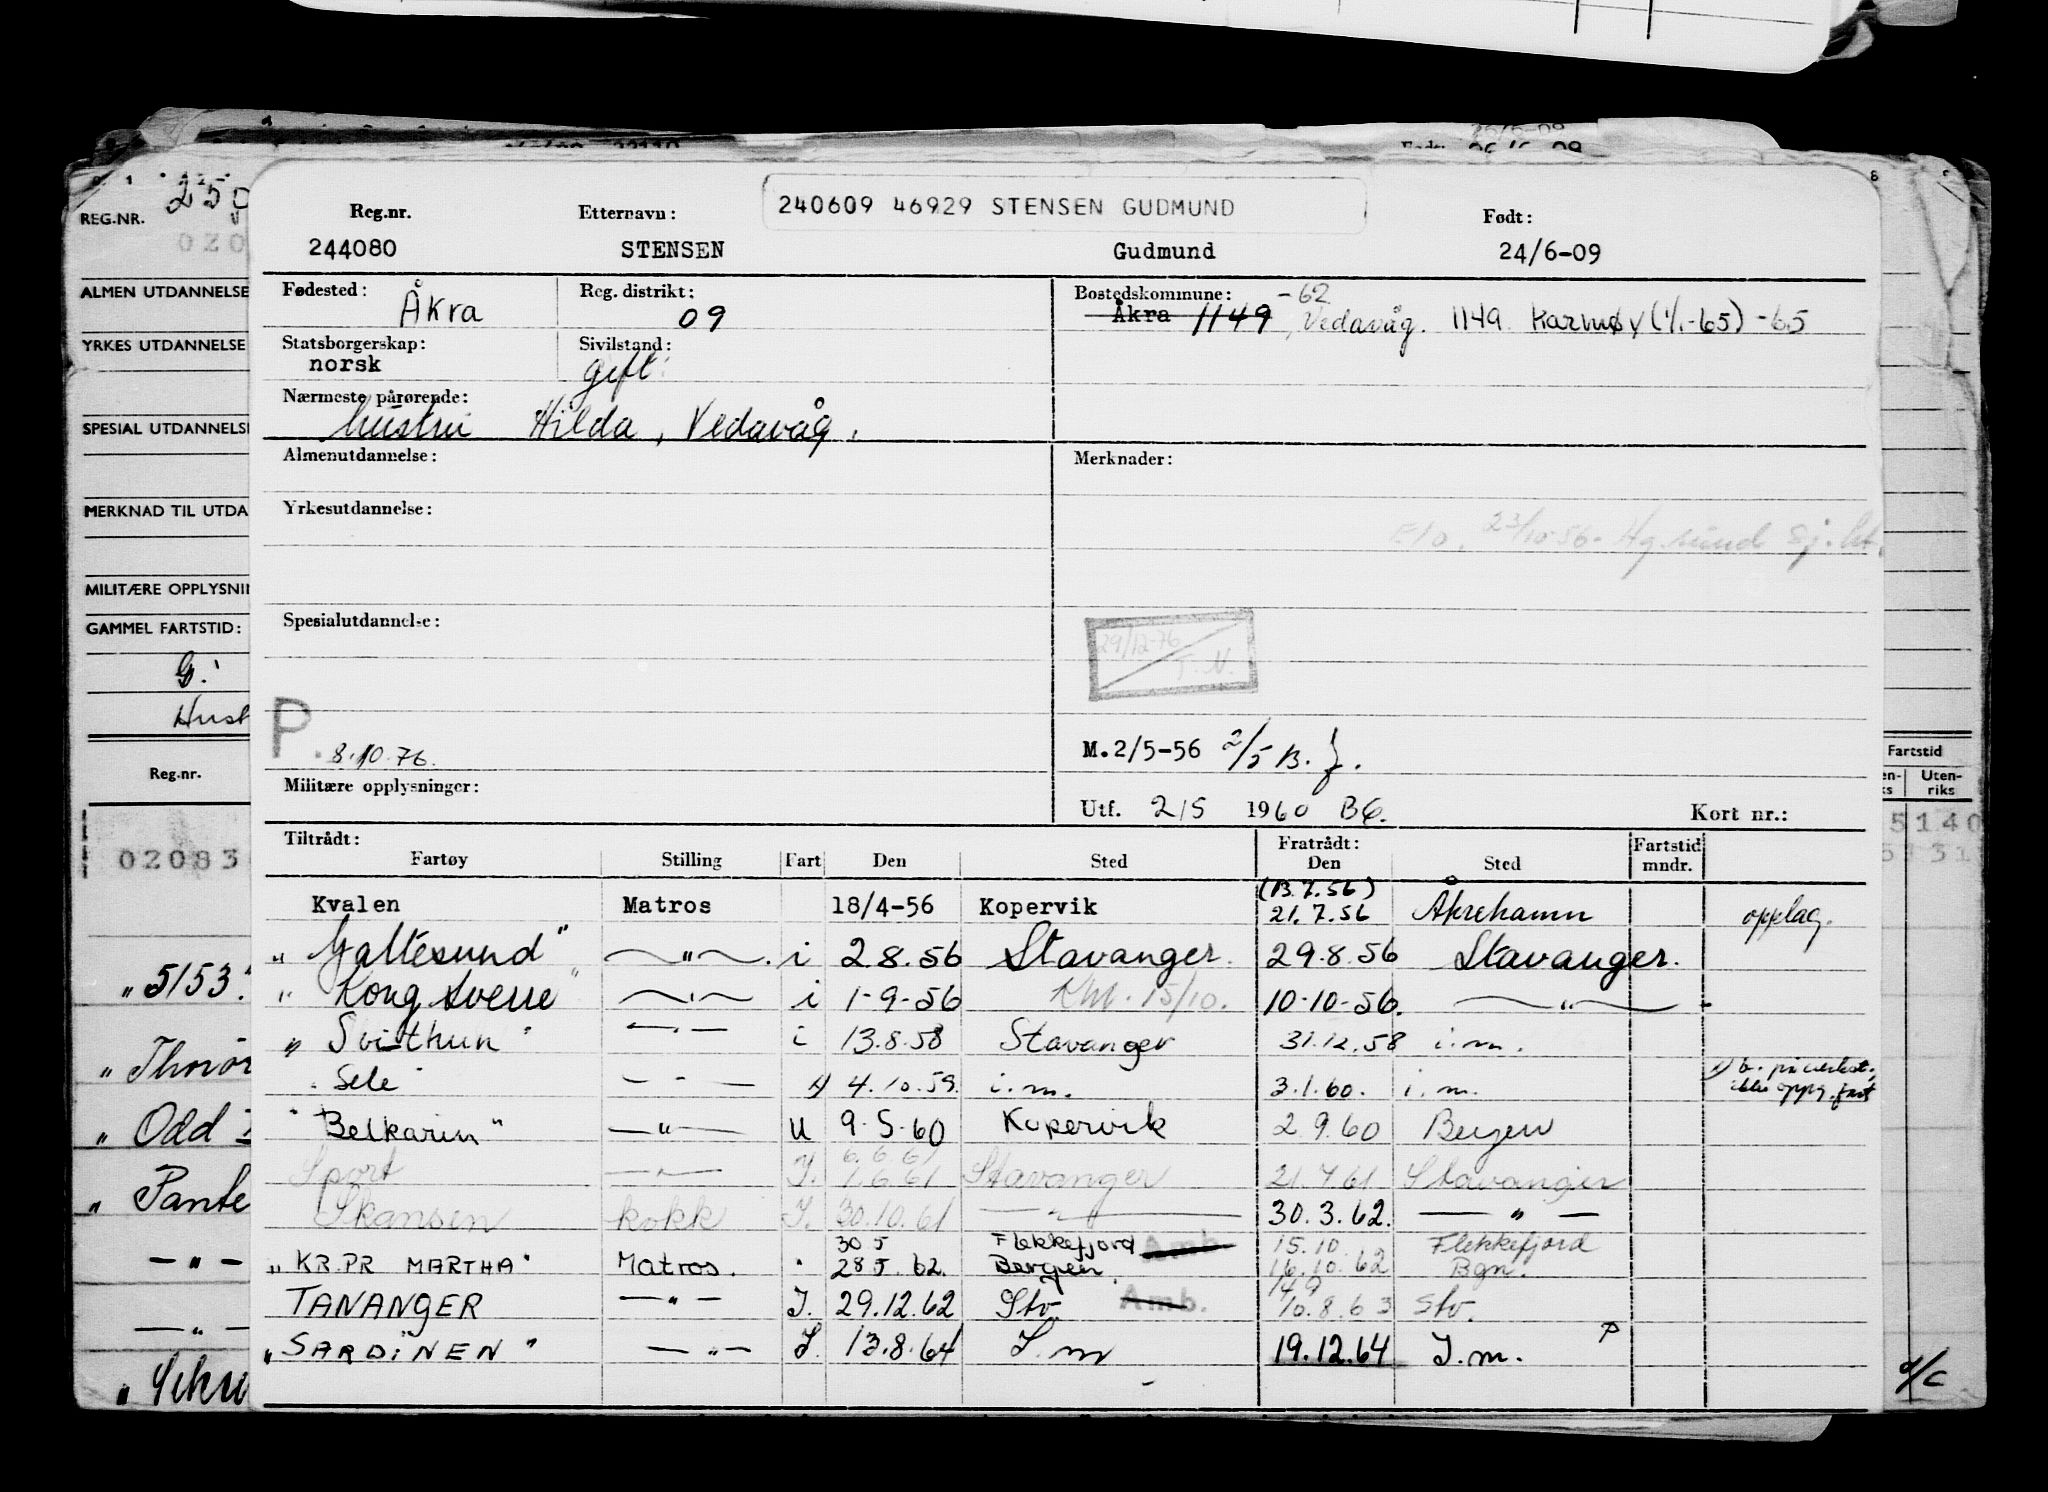 26/6-09
REG.NR.
ALMEN UTDANNELSE
YRKES UTDANNELSE
SPESIAL UTDANNELSE
MERKNAD TIL UTDA
MILITÆRE OPPLYSNIN
GAMMEL FARTSTID:
G.
Hust
Reg.nr.
02083
"5153"
"
" Odd
" Pante
— " —
— " —
Fartstid
Uten-
riks
5140
240609 46929 STENSEN GUDMUND
Reg.nr. Etternavn: Født:
244080 STENSEN Gudmund 24/6-09
Fødested: Åkra Reg. distrikt: 09 Bostedskommune: Åkra 1149 -62 Vedavåg. 1149 Karmøy (1/1-65) -65
Statsborgerskap: norsk Sivilstand: gift
Nærmeste pårørende:
hustru Hilda, Vedavåg.
Almenutdannelse: Merknader:
Yrkesutdannelse:
23/10-56- Hg.sund Sj.
Spesialutdannelse:
29/12-76
T.N.
P. 8.10.76.
M.2/5-56 2/5 B. J.
Militære opplysninger:
Utf. 2/5 1960 BG. Kort nr.:
Tiltrådt: Fratrådt: Fartstid
Fartøy Stilling Fart Den Sted Den Sted mndr.
(13.7.56)
Kvalen Matros 18/4-56 Kopervik 21.7.56 Åkrehamn opplag.
" Galtesund " — " — i 2.8.56 Stavanger. 29.8.56 Stavanger.
" Kong Sverre " — " — i 1-9-56 Khl. 15/10. 10-10-56. — " —
" Svithun " — " — i 13.8.58 Stavanger 31.12.58 i.m.
" Sele " — " — x) 4.10.59. i.m. 3.1.60. i.m. x)
ikke oppg. fart
" Belkarin " — " — U 9-5-60 Kopervik 2.9.60 Bergen
6.6.61
Sport — " — I. 1.6.61 Stavanger 21.7.61 Stavanger
Skansen kokk I. 30.10.61 — " — 30.3.62. — " —
30 5 Flekkefjord Amb. 15.10 Flekkefjord
" KR.PR MARTHA " Matros. " 28 5. 62. Bergen 16.10.62 Bgn.
14 9
TANANGER — " — I. 29.12.62 Stv. Amb. 10.8.63 Stv.
" SARDINEN " — " — I. 13.8.64 I.m 19.12.64 I.m. P